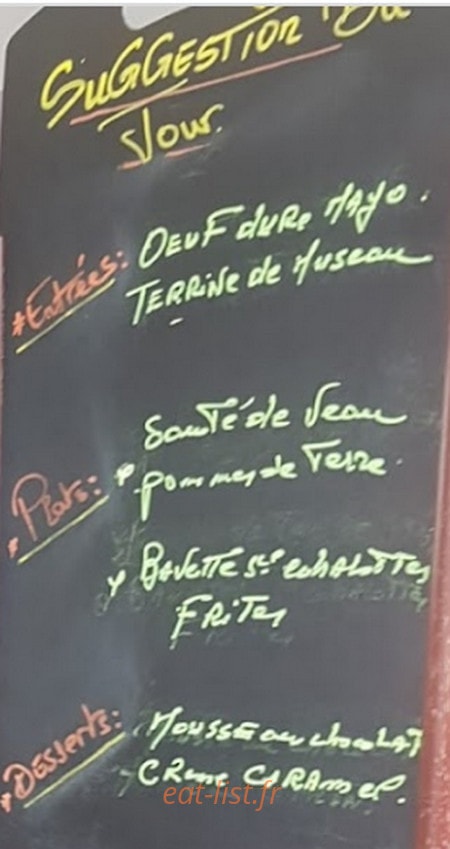 SUGGESTION DU
Jour.
* Entrées: OEUF dure MAYO.
TERRINE de Museau
* Plats: * Sauté de Veau
pommes de Terre.
* BAVETTE sce echalottes
FRITES
* Desserts: Mousse au chocolat
Creme CARAMEL.
eat-list.fr